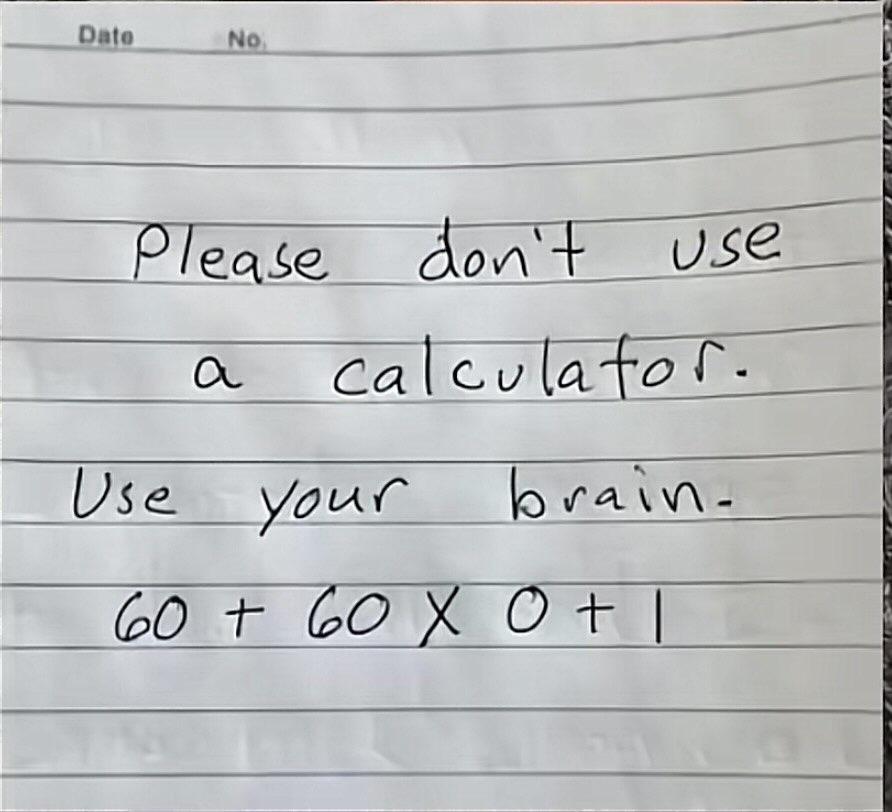 Date No.
Please don't use
a calculator.
Use your brain.
60 + 60 X 0 + 1